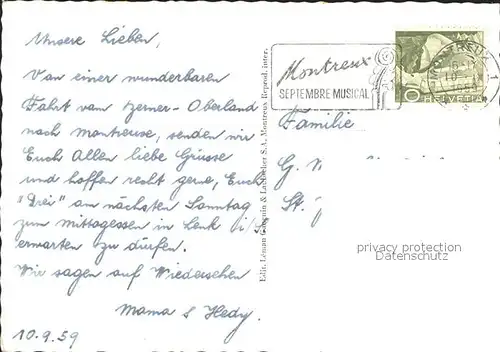 Unsere Lieben,
Von einer wunderbaren
Fahrt vom Berner-Oberland
nach Montreuse, senden wir
Euch Allen liebe Grüsse
und hoffen recht gerne, Euch
"Drei" am nächsten Sonntag
zum Mittagessen in Lenk i/S
erwarten zu dürfen.
Wir sagen auf Wiedersehen
Mama & Hedy.
10.9.59
Montreux
SEPTEMBRE MUSICAL
MONTREUX 1
10
HELVETIA
Familie
G.
St.
privacy protection
Datenschutz
S.A. Montreux Reprod. inter.